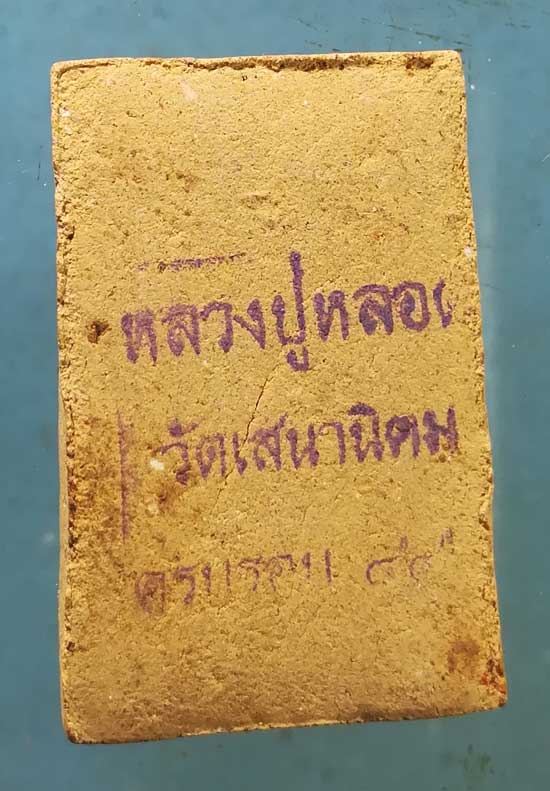 หลวงปู่หลอ
วัดเสนานิคม
ครบรอบ